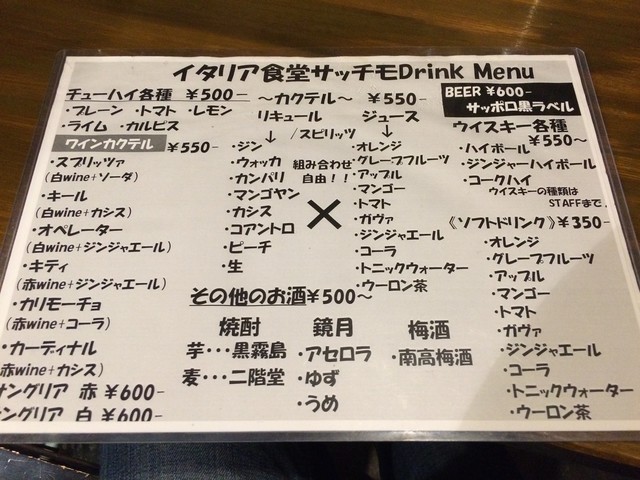 イタリア食堂サッチモDrink Menu
チューハイ各種 ¥500-
・プレーン ・トマト ・レモン
・ライム ・カルピス
ワインカクテル ¥550-
・スプリッツァ
(白wine+ソーダ)
・キール
(白wine+カシス)
・オペレーター
(白wine+ジンジャエール)
・キティ
(赤wine+ジンジャエール)
・カリモーチョ
(赤wine+コーラ)
・カーディナル
(赤wine+カシス)
サングリア 赤 ¥600-
サングリア 白 ¥600-
～カクテル～ ¥550-
リキュール ジュース
↓ /スピリッツ ↓
・ジン
・ウォッカ
・カンパリ
・マンゴヤン
・カシス
・コアントロ
・ピーチ
・生
組み合わせ
自由！！
×
・オレンジ
・グレープフルーツ
・アップル
・マンゴー
・トマト
・ガヴァ
・ジンジャエール
・コーラ
・トニックウォーター
・ウーロン茶
その他のお酒¥500～
焼酎
芋・・・黒霧島
麦・・・二階堂
鏡月
・アセロラ
・ゆず
・うめ
梅酒
・南高梅酒
BEER ¥600-
サッポロ黒ラベル
ウイスキー各種
¥550～
・ハイボール
・ジンジャーハイボール
・コークハイ
ウイスキーの種類は
STAFFまで.
《ソフトドリンク》¥350-
・オレンジ
・グレープフルーツ
・アップル
・マンゴー
・トマト
・ガヴァ
・ジンジャエール
・コーラ
・トニックウォーター
・ウーロン茶